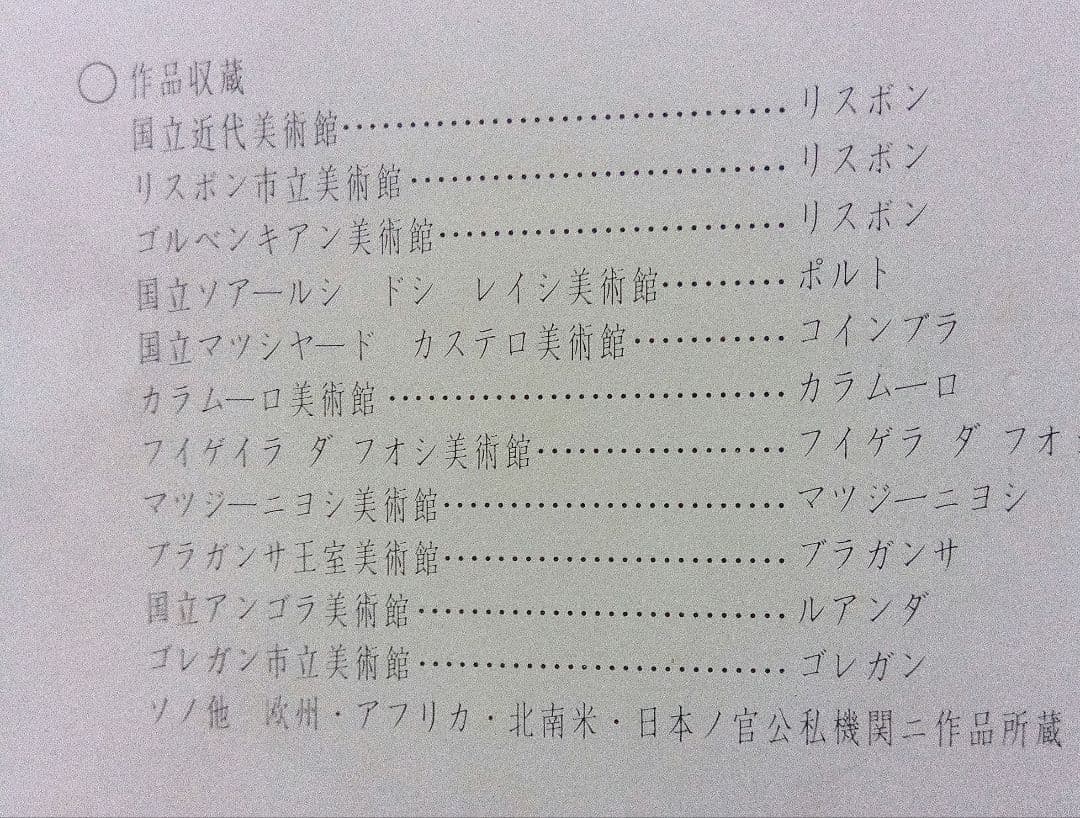 ○作品収蔵
国立近代美術館……………………………………リスボン
リスボン市立美術館………………………………リスボン
ゴルベンキアン美術館……………………………リスボン
国立ソアールシ　ドシ　レイシ美術館………ポルト
国立マツシヤード　カステロ美術館…………コインブラ
カラムーロ美術館…………………………………カラムーロ
フイゲイラ ダ フオシ美術館……………………フイゲラ ダ フオ
マツジーニヨシ美術館……………………………マツジーニヨシ
ブラガンサ王室美術館……………………………ブラガンサ
国立アンゴラ美術館………………………………ルアンダ
ゴレガン市立美術館………………………………ゴレガン
ソノ他　欧州・アフリカ・北南米・日本ノ官公私機関ニ作品所蔵